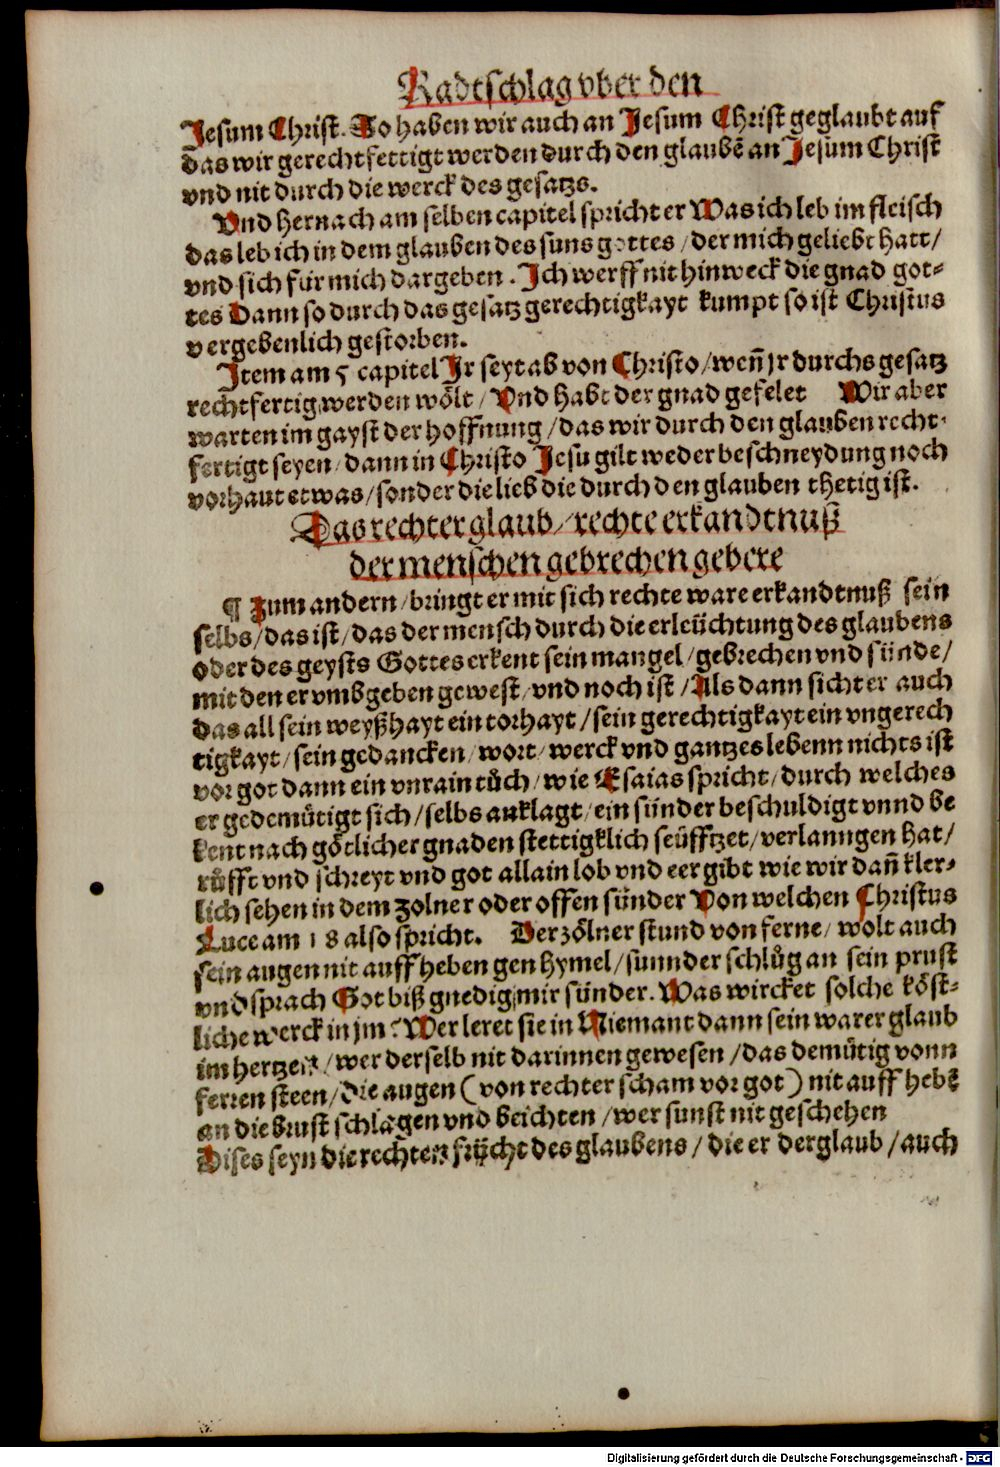 Radtschlag vber den
Jesum Christ. So haben wir auch an Jesum Christ geglaubt auf
das wir gerechtfettigt werden durch den glaubē an Jesum Christ
vnd nit durch die werck des gesatzs.
Vnd hernach am selben capitel spricht er Was ich leb im fleisch
das leb ich in dem glauben des suns gottes / der mich geliebt hatt /
vnd sich für mich dargeben. Ich werff nit hinweck die gnad got-
tes Dann so durch das gesatz gerechtigkayt kumpt so ist Christus
vergebenlich gestorben.
Item am 5 capitel Ir seyt ab von Christo / weñ jr durchs gesatz
rechtfertig werden wölt / Vnd habt der gnad gefelet Wir aber
warten im gayst der hoffnung / das wir durch den glauben recht-
fertigt seyen / dann in Christo Jesu gilt weder beschneydung noch
vorhaut etwas / sonder die lieb die durch den glauben thetig ist.
Das rechter glaub / rechte erkandtnuß
der menschen gebrechen gebere
¶ Zum andern / bringt er mit sich rechte ware erkandtnuß sein
selbs / das ist / das der mensch durch die erleüchtung des glaubens
oder des geysts Gottes erkent sein mangel / gebrechen vnd sünde /
mit den er vmbgeben gewest / vnd noch ist / Als dann sicht er auch
das all sein weyßhayt ein torhayt / sein gerechtigkayt ein vngerech
tigkayt / sein gedancken / wort / werck vnd gantzes lebenn nichts ist
vor got dann ein vnrain tůch / wie Esaias spricht / durch welches
er gedemütigt sich / selbs anklagt / ein sünder beschuldigt vnnd be
kent nach götlicher gnaden stettigklich seüfftzet / verlanngen hat /
rüfft vnd schreyt vnd got allain lob vnd eer gibt wie wir dañ kler-
lich sehen in dem zolner oder offen sünder Von welchen Christus
Luce am 18 also spricht. Der zölner stund von ferne / wolt auch
sein augen nit auff heben gen hymel / sunnder schlůg an sein prust
vnd sprach Got biß gnedig mir sünder. Was wircket solche köst-
liche werck in jm? Wer leret sie in Niemant dann sein warer glaub
im hertzen / wer derselb nit darinnen gewesen / das demütig vonn
ferren steen / die augen ( von rechter scham vor got ) nit auff hebē
an die brust schlagen vnd beichten / wer sunst nit geschehen
Dises seyn die rechten frücht des glaubens / die er der glaub / auch
Digitalisierung gefördert durch die Deutsche Forschungsgemeinschaft - DFG